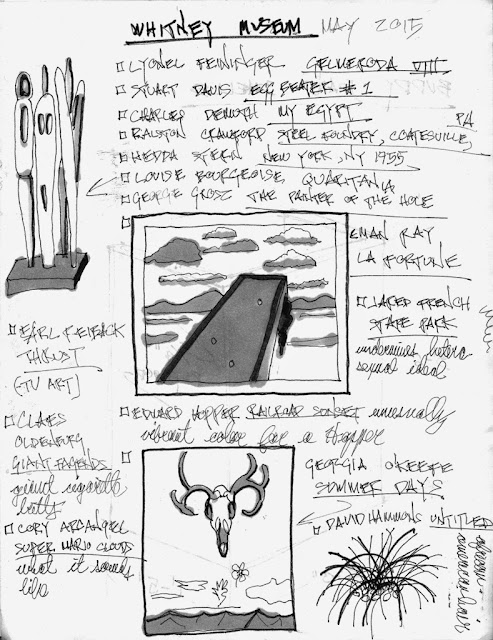 WHITNEY MUSEUM MAY 2015
LYONEL FEININGER GELMERODA VIII
STUART DAVIS EGG BEATER #1
CHARLES DEMUTH MY EGYPT
RALSTON CRAWFORD STEEL FOUNDRY, COATESVILLE, PA
HEDDA STERN NEW YORK, NY 1955
LOUISE BOURGEOISE, QUARTANIA
GEORGE GROSZ THE PAINTER OF THE HOLE
MAN RAY
LA FORTUNE
JARED FRENCH
STATE PARK
undermines hetero
sexual ideal
EARL REIBACK
THRUST
(TV ART)
EDWARD HOPPER RAILROAD SUNSET unusually
vibrant color for a Hopper
CLAES
OLDENBURG
GIANT FAGENDS
giant cigarette
butts
GEORGIA O'KEEFE
SUMMER DAYS
CORY ARCANGEL
SUPER MARIO CLOUDS
what it sounds
like
DAVID HAMMONS UNTITLED